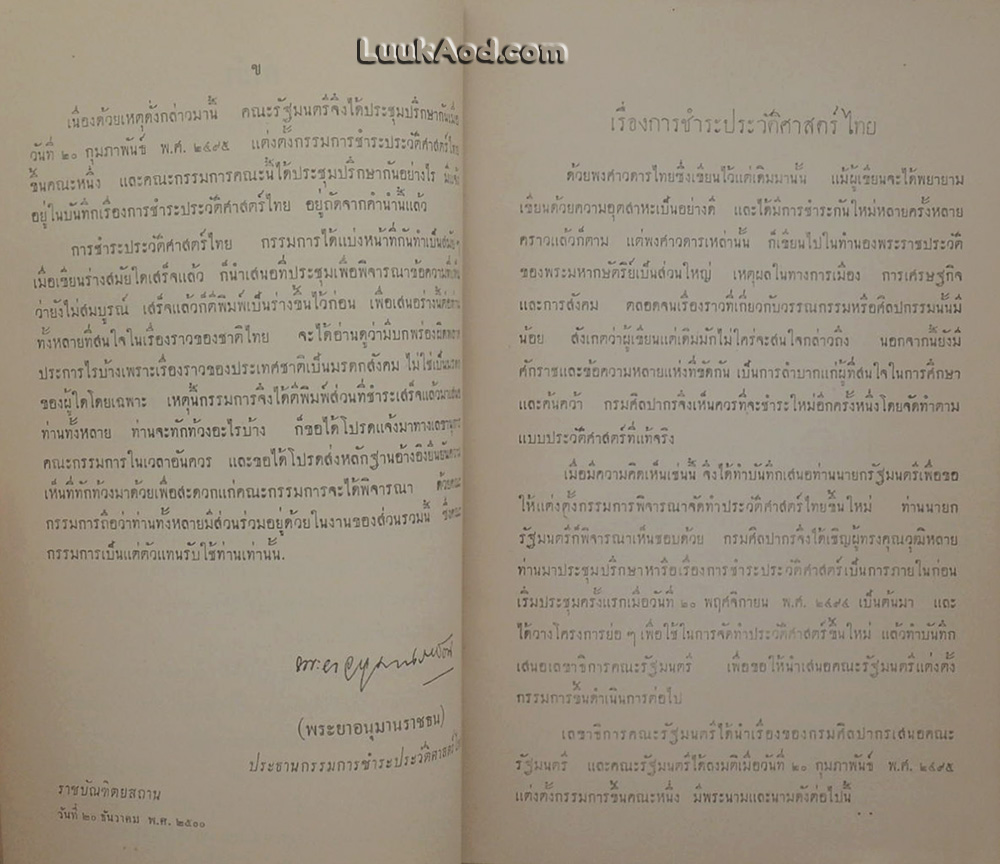 LuukAod.com
ข
เนื่องด้วยเหตุดั่งกล่าวมานี้ คณะรัฐมนตรีจึงได้ประชุมปรึกษากันเมื่อ
วันที่ ๒๐ กุมภาพันธ์ พ.ศ. ๒๔๙๕ แต่งตั้งกรรมการชำระประวัติศาสตร์ไทย
ขึ้นคณะหนึ่ง และคณะกรรมการคณะนี้ได้ประชุมปรึกษากันอย่างไร มีแจ้ง
อยู่ในบันทึกเรื่องการชำระประวัติศาสตร์ไทย อยู่ถัดจากคำนำนี้แล้ว
การชำระประวัติศาสตร์ไทย กรรมการได้แบ่งหน้าที่กันทำเป็นสมัย ๆ
เมื่อเขียนร่างสมัยใดเสร็จแล้ว ก็นำเสนอที่ประชุมเพื่อพิจารณาข้อความที่เห็น
ว่ายังไม่สมบูรณ์ เสร็จแล้วก็ตีพิมพ์เป็นร่างขึ้นไว้ก่อน เพื่อเสนอร่างนี้ต่อท่าน
ทั้งหลายที่สนใจในเรื่องราวของชาติไทย จะได้อ่านดูว่ามีบกพร่องผิดพลาด
ประการไรบ้างเพราะเรื่องราวของประเทศชาติเป็นมรดกสังคม ไม่ใช่เป็นมรดก
ของผู้ใดโดยเฉพาะ เหตุนี้กรรมการจึงได้ตีพิมพ์ส่วนที่ชำระเสร็จแล้วมาเสนอ
ท่านทั้งหลาย ท่านจะทักท้วงอะไรบ้าง ก็ขอได้โปรดแจ้งมาทางเลขานุการ
คณะกรรมการในเวลาอันควร และขอได้โปรดส่งหลักฐานอ้างอิงยืนยันความ
เห็นที่ทักท้วงมาด้วยเพื่อสะดวกแก่คณะกรรมการจะได้พิจารณา ด้วยคณะ
กรรมการถือว่าท่านทั้งหลายมีส่วนร่วมอยู่ด้วยในงานของส่วนรวมนี้ ซึ่งคณะ
กรรมการเป็นแต่ตัวแทนรับใช้ท่านเท่านั้น.
(พระยาอนุมานราชธน)
ประธานกรรมการชำระประวัติศาสตร์ไทย
ราชบัณฑิตยสถาน
วันที่ ๒๐ ธันวาคม พ.ศ. ๒๕๐๐
เรื่องการชำระประวัติศาสตร์ไทย
ด้วยพงศาวดารไทยซึ่งเขียนไว้แต่เดิมมานั้น แม้ผู้เขียนจะได้พยายาม
เขียนด้วยความอุตสาหะเป็นอย่างดี และได้มีการชำระกันใหม่หลายครั้งหลาย
คราวแล้วก็ตาม แต่พงศาวดารเหล่านั้น ก็เขียนไปในทำนองพระราชประวัติ
ของพระมหากษัตริย์เป็นส่วนใหญ่ เหตุผลในทางการเมือง การเศรษฐกิจ
และการสังคม ตลอดจนเรื่องราวที่เกี่ยวกับวรรณกรรมหรือศิลปกรรมนั้นมี
น้อย สังเกตว่าผู้เขียนแต่เดิมมักไม่ใคร่จะสนใจกล่าวถึง นอกจากนี้ยังมี
ศักราชและข้อความหลายแห่งที่ขัดกัน เป็นการลำบากแก่ผู้ที่สนใจในการศึกษา
และค้นคว้า กรมศิลปากรจึงเห็นควรที่จะชำระใหม่อีกครั้งหนึ่งโดยจัดทำตาม
แบบประวัติศาสตร์ที่แท้จริง
เมื่อมีความคิดเห็นเช่นนี้ จึงได้ทำบันทึกเสนอท่านนายกรัฐมนตรีเพื่อขอ
ให้แต่งตั้งกรรมการพิจารณาจัดทำประวัติศาสตร์ไทยขึ้นใหม่ ท่านนายก
รัฐมนตรีก็พิจารณาเห็นชอบด้วย กรมศิลปากรจึงได้เชิญผู้ทรงคุณวุฒิหลาย
ท่านมาประชุมปรึกษาหารือเรื่องการชำระประวัติศาสตร์เป็นการภายในก่อน
เริ่มประชุมครั้งแรกเมื่อวันที่ ๒๐ พฤศจิกายน พ.ศ. ๒๔๙๔ เป็นต้นมา และ
ได้วางโครงการย่อ ๆ เพื่อใช้ในการจัดทำประวัติศาสตร์ขึ้นใหม่ แล้วทำบันทึก
เสนอเลขาธิการคณะรัฐมนตรี เพื่อขอให้นำเสนอคณะรัฐมนตรีแต่งตั้ง
กรรมการขึ้นดำเนินการต่อไป
เลขาธิการคณะรัฐมนตรีได้นำเรื่องของกรมศิลปากรเสนอคณะ
รัฐมนตรี และคณะรัฐมนตรีได้ลงมติเมื่อวันที่ ๒๐ กุมภาพันธ์ พ.ศ. ๒๔๙๕
แต่งตั้งกรรมการขึ้นคณะหนึ่ง มีพระนามและนามดังต่อไปนี้